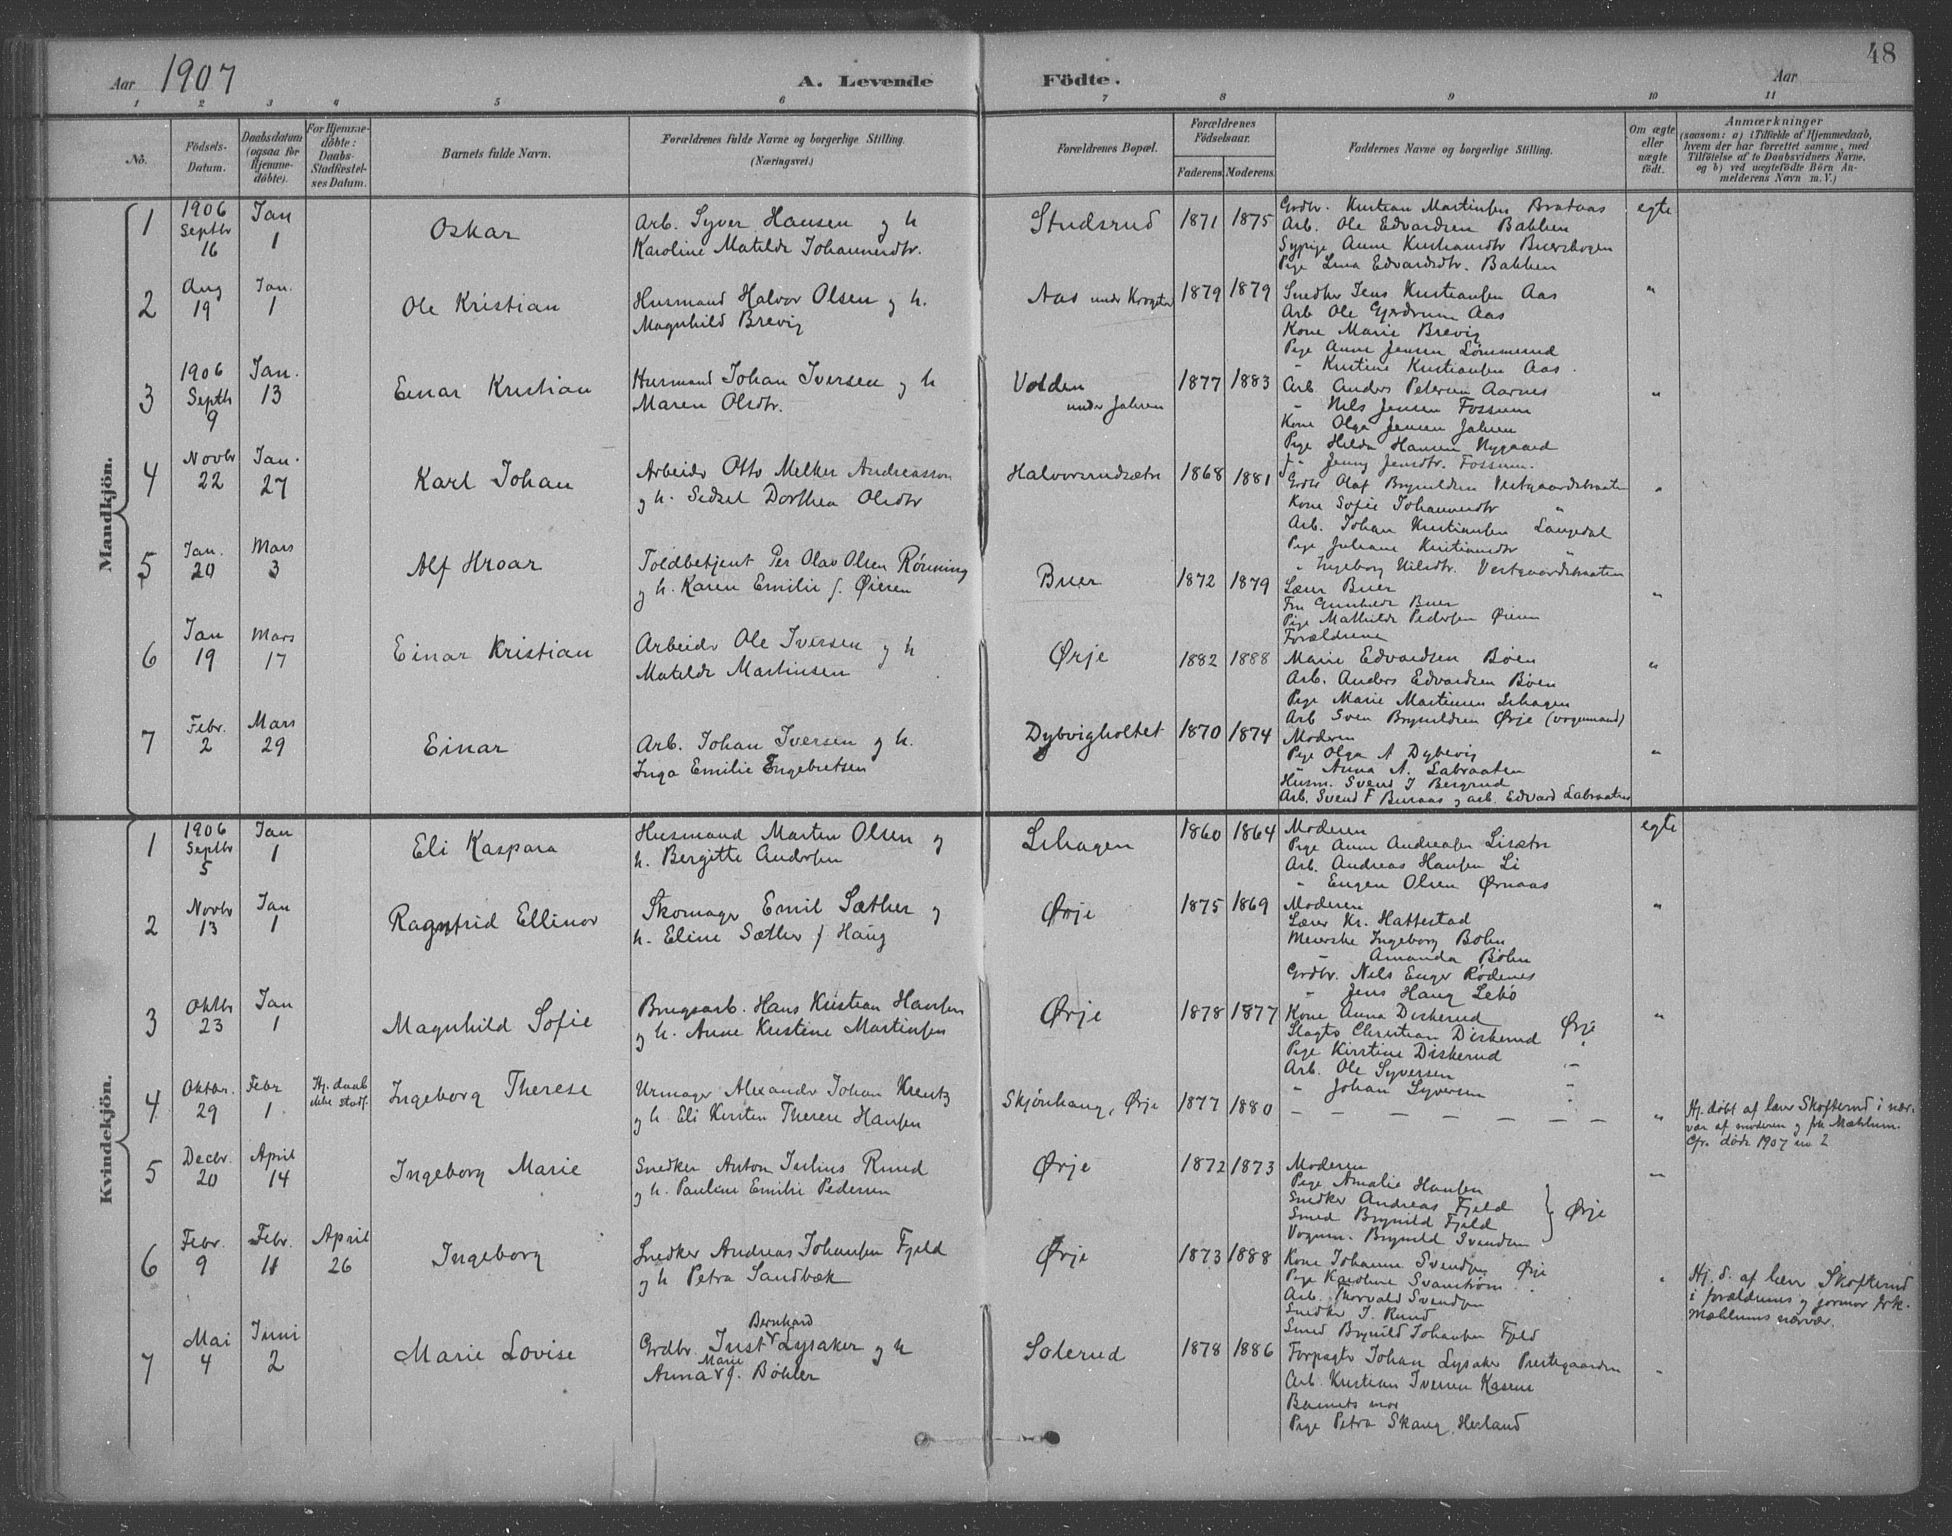 48
Aar 1907 A. Levende Födte. Aar
1 2 3 4 5 6 7 8 9 10 11
No.
Födsels-
Datum.
Daabsdatum
(ogsaa for
Hjemme-
döbte).
For Hjemme-
döbte:
Daabs-
Stadfæstel-
ses Datum.
Barnets fulde Navn.
Forældrenes fulde Navne og borgerlige Stilling.
(Næringsvei.)
Forældrenes Bopæl.
Forældrenes
Födselsaar.
Faderens. Moderens.
Faddernes Navne og borgerlige Stilling.
Om ægte
eller
uægte
født.
Anmærkninger
(saasom: a) i Tilfælde af Hjemmedaab,
hvem der har forrettet samme, med
Tilföielse af to Daabsvidners Navne,
og b) ved uægtefödte Börn An-
melderens Navn m. V.)
Mandkjön.
1
1906
Septbr
16
Jan
1
Oskar
Arb. Syver Hansen og h
Karoline Matilde Johannesdtr.
Studsrud
1871 1875
Grdbr. Kristian Martinsen Brataas
Arb. Ole Edvardsen Bakken
Sypige Anne Kristiansdtr Buershagen
Pige Lina Edvardsdtr. Bakken
egte
2
Aug
19
Jan.
1
Ole Kristian
Husmand Halvor Olsen og h.
Magnhild Brevig
Aas under
1879 1879
Snedker Jens Kristiansen Aas
Arb Ole Gjerdrum Aas
Kone Marie Brevig
Pige Anne Jensen Lømmerud
" Kristine Kristiansen Aas.
"
3
1906
Septb
9
Jan.
13
Einar Kristian
Husmand Johan Iversen og h
Maren Olsdtr.
Volden
under Jahren
1877 1883
Arb. Anders Petersen Aarnes
" Nils Jensen Fossum
Kone Olga Jensen Jahren
Pige Hilda Hansen Nygaard
" Jenny Jensdtr. Fossum.
"
4
Novbr
22
Jan.
27
Karl Johan
Arbeider Otto Melker Andreasson
og h. Sedsel Dorthea Olsdtr
Halvorsrudsætr
1868 1881
Grdbr Olaf Brynildsen Vestgaardsbraaten
Kone Sofie Johannesdtr "
Arb. Johan Kristiansen Langedal
Pige Juliane Kristiansdtr "
" Ingeborg Nilsdtr. Vestgaardsbraaten
"
5
Jan.
20
Mars
3
Alf Hroar
Toldbetjent Per Olav Olsen Rønning
og h. Karen Emilie f. Øieren
Buer
1872 1879
Lærer Buer
Fru Gunhilda Buer
Pige Mathilde Pedersen Øieren
Forældrene
"
6
Jan
19
Mars
17
Einar Kristian
Arbeider Ole Iversen og h
Matilde Martinsen
Ørje
1882 1888
Marie Edvardsen Bøen
Arb. Anders Edvardsen Bøen
Pige Marie Martinsen Lihagen
Arb Sven Brynildsen Ørje (vognmand)
"
7
Febr.
2
Mars
29
Einar
Arb. Johan Iversen og h.
Inga Emilie Engebretsen
Dybvigholtet
1870 1874
Moderen
Pige Olga A Dybevig
" Anna A. Labraaten
Husm. Svend J Bergerud
Arb. Svend F Buraas og arb. Edvard Labraaten
"
Kvindekjön.
1
1906
Septbr
5
Jan
1
Eli Kaspara
Husmand Martin Olsen og
h. Bergitte Andersen
Lihagen
1860 1864
Moderen
Pige Anne Andreasen Lisætr
Arb. Andreas Hansen Li
" Eugen Olsen Ørnaas
egte
2
Novbr
13
Jan
1
Ragnfrid Ellinor
Skomager Emil Sæther og
h. Eline Sæther f Haug
Ørje
1875 1869
Moderen
Lærer Kr. Hattestad
Meierske Ingeborg Bøhn
" Amanda Bøhn
Grdbr. Nils Enger Rødenes
" Jens Haug Lebø
"
3
Oktbr
23
Jan
1
Magnhild Sofie
Brugsarb. Hans Kristian Hansen
og h. Anne Kristine Martinsen
Ørje
1878 1877
Kone Anna Diskerud
Slagter Christian Diskerud Ørje
Pige Kirstine Diskerud "
Arb. Ole Syversen "
" Johan Syversen "
"
4
Oktbr.
29
Febr
1
Hj. daab
ikke stadf.
Ingeborg Therese
Urmager Alexander Johan Krentz
og h. Eli Kirsten Therese Hansen
Skjønhaug, Ørje
1877 1880
– – – – – – – –
"
Hj. døbt af lærer Skofterud i nær-
vær af moderen og frk Mæhlum.
Cfr. døde 1907 no 2
5
Decbr.
20
April
14
Ingeborg Marie
Snedker Anton Julius Ruud
og h. Pauline Emilie Pedersen
Ørje
1872 1873
Moderen
Pige Amalie Hansen
Snedker Andreas Fjeld
Smed Brynild Fjeld
Vognm. Brynild Svendsen
Ørje
"
6
Febr.
9
Febr.
11
April
26
Ingeborg
Snedker Andreas Johansen Fjeld
og h Petra Sandbæk
Ørje
1873 1888
Kone Johanne Svendsen Ørje
Pige Karoline Svanstrøm "
Arb. Thorvald Svendsen
Snedker J. Ruud
Smed Brynild Johansen Fjeld
"
Hj. d. af lærer Skofterud
i forældrenes og jormor frk.
Mæhlums nærvær.
7
Mai
4
Juni
2
Marie Lovise
Bernhard
Grdbr. Just Lysaker og h
Marie
Anna f. Bøhler
Solerud
1878 1886
Forpagter Johan Lysaker Prestegaarden
Arb. Kristian Iversen Kasene
Barnets mor
Pige Petra Skaug, Hesland
"